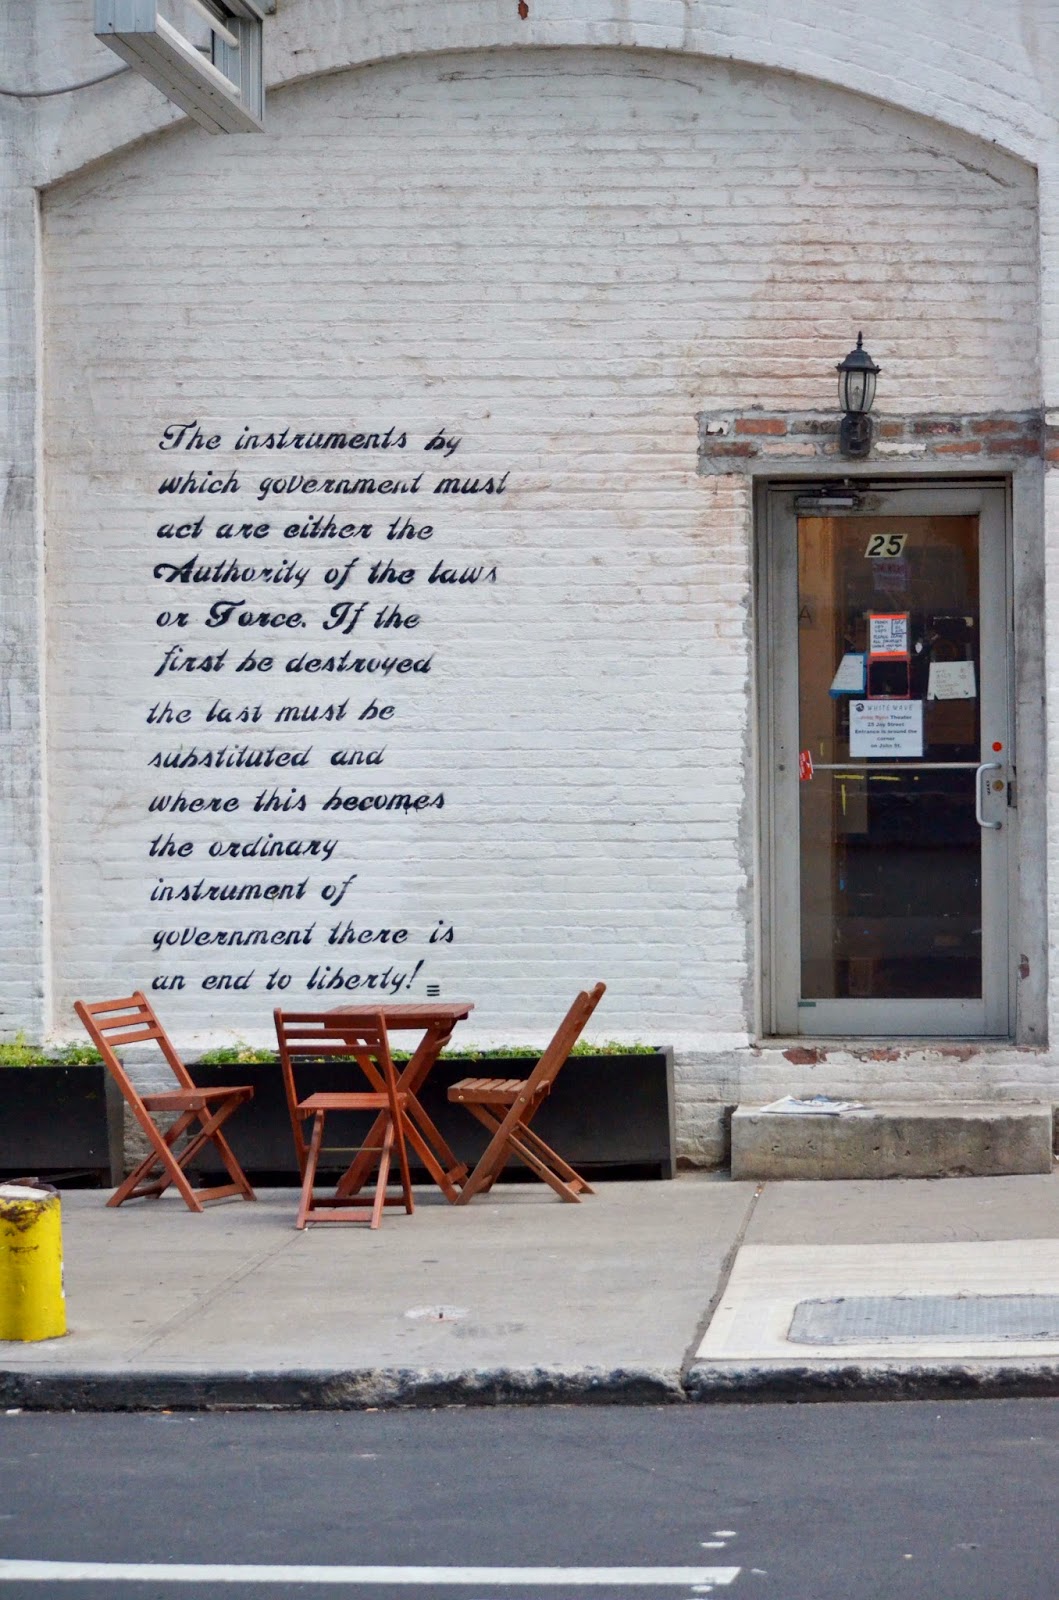 The instruments by
which government must
act are either the
Authority of the laws
or Force. If the
first be destroyed
the last must be
substituted and
where this becomes
the ordinary
instrument of
government there is
an end to liberty!
25
WHITE WAVE
Theater
25 Jay Street
Entrance is around the
corner
on John St.